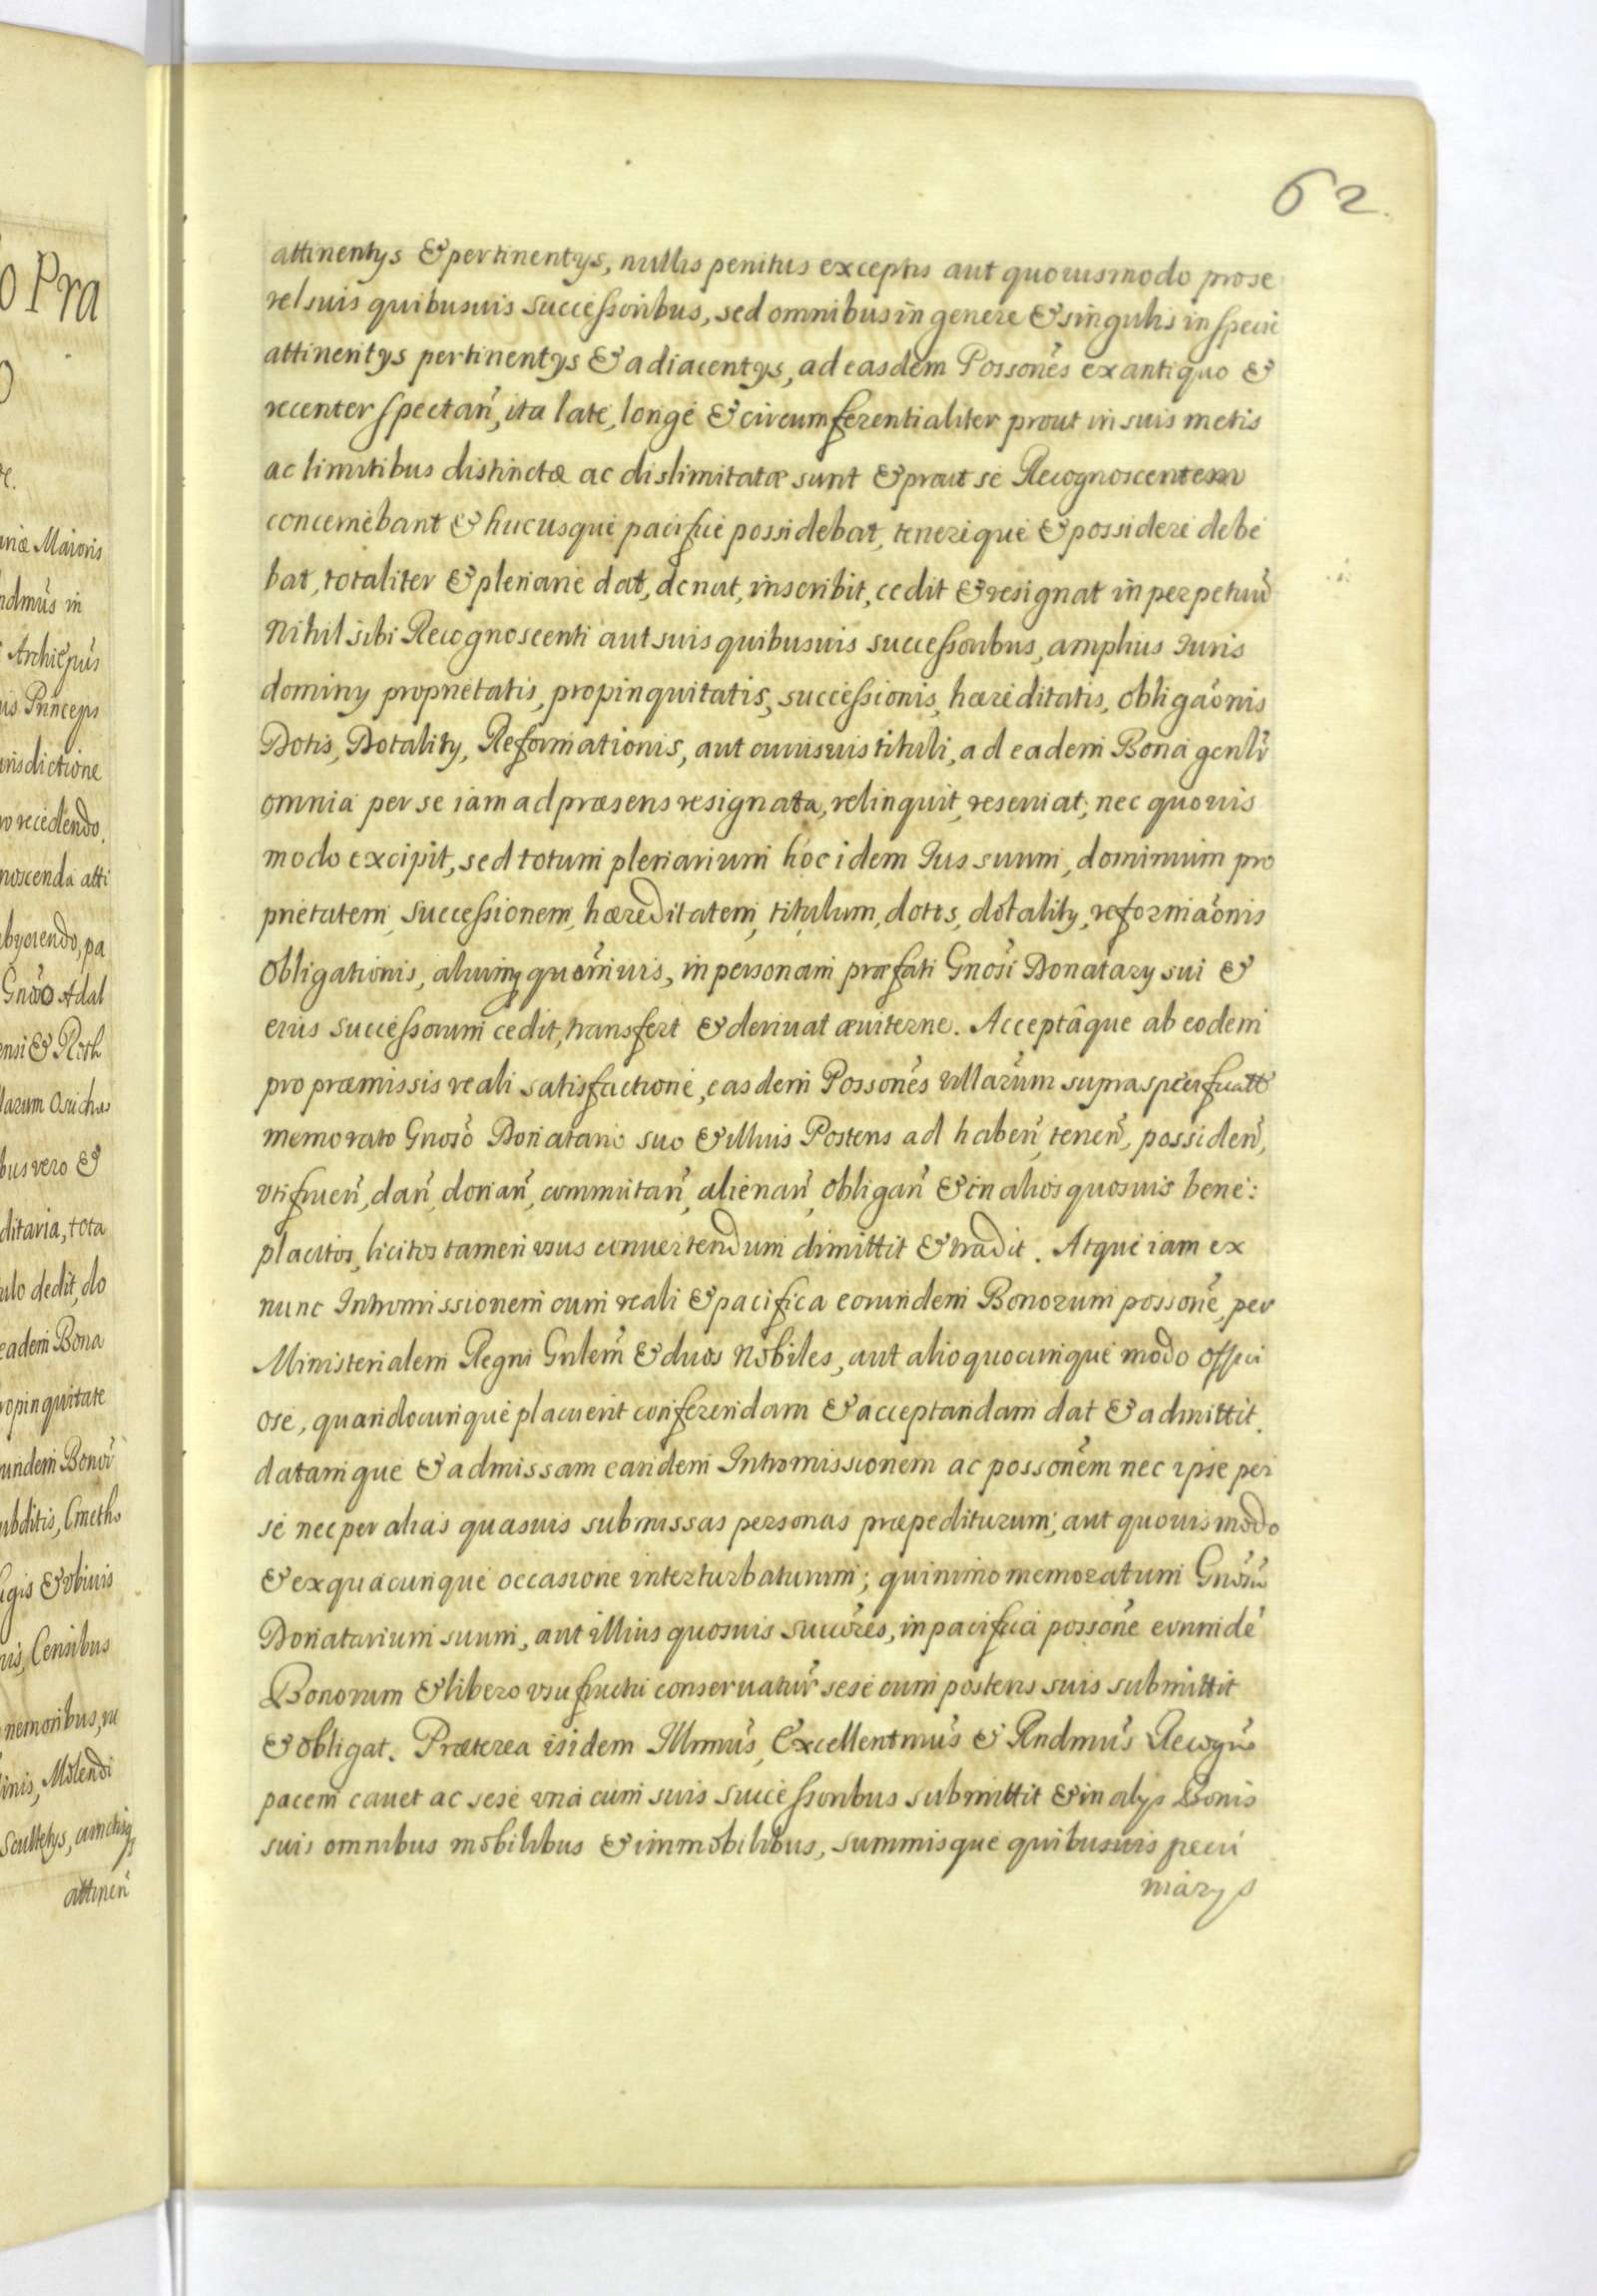 62.
attinentys & pertinentys, nullis penitus exceptis aut quouismodo pro se
vel suis quibusuis successoribus, sed omnibus in genere & singulis in specie
attinentys pertinentys & adiacentys, ad easdem Possones̃ ex antiquo &
recenter spectan̄, ita late, longe & circumferentialiter prout in suis metis
ac limitibus distinctæ ac dislimitatæ sunt & prout se Recognoscentem
concernebant & hucusque pacifice possidebat, tenereque & possidere debe
bat, totaliter & plenarie dat, donat, inscribit, cedit & resignat in perpetuū
Nihil sibi Recognoscenti aut suis quibusuis successoribus, amplius Iuris
dominy proprietatis, propinquitatis, successionis, hæreditatis, obligaõnis
Dotis, Dotality, Reformationis, aut cuiusuis tituli, ad eadem Bona genlr̃
omnia per se iam ad præsens resignata, relinquit, reseruat; nec quouis
modo excipit, sed totum plenarium hoc idem Ius suum, dominium pro
prietatem, successionem, hæreditatem, titulum, dotis, dotality, reformaõnis
Obligationis, aliumq quom̃uis, in personam præfati Gnosĩ Donatary sui &
eius successorum cedit, transfert & deriuat æuiterne. Acceptâque ab eodem
pro præmissis reali satisfactione, easdem Possones̃ villarum supraspecificatt
memorato Gnosõ Donatario suo & illius Posteris ad haben̄, tenen̄, possiden̄,
vtifruen̄, dan̄, donan̄, commutan̄, alienan̄, obligan̄ & in alios quosuis bene:
placitos, licitos tamen vsus conuertendum dimittit & tradit. Atque iam ex
nunc Intromissionem cum reali & pacifica eorundem Bonorum possonẽ, per
Ministerialem Regni Gnlem̃ & duos Nobiles, aut alio quocunque modo offici
ose, quandocunque placuerit conferendam & acceptandam dat & admittit.
datamque & admissam eandem Intromissionem ac possonẽm nec ipse per
se nec per alias quasuis submissas personas præpediturum, aut quouis modo
& ex quacunque occasione interturbaturum; quinimo memoratum Gnosũ
Donatarium suum, aut illius quosuis succrẽs, in pacifica possonẽ eorundẽ
Bonorum & libero vsufructu conseruatur̃ sese cum posteris suis submittit
& obligat. Præterea isidem Illmus̃, Excellentmus̃ & Rndmus̃ Recogn̄
pacem cauet ac sese vna cum suis successoribus submittit & in alys Bonis
suis omnibus mobilibus & immobilibus, summisque quibusuis pecu
niarys